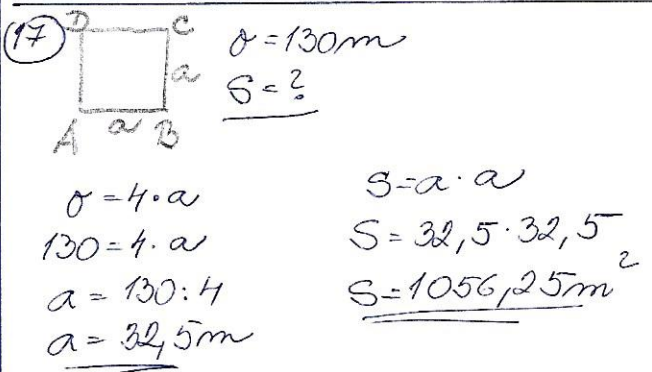 17
D C
o = 130m
a
S = ?
A a B
o = 4·a
130 = 4·a
a = 130:4
a = 32,5m
S = a·a
S = 32,5·32,5
S = 1056,25m²